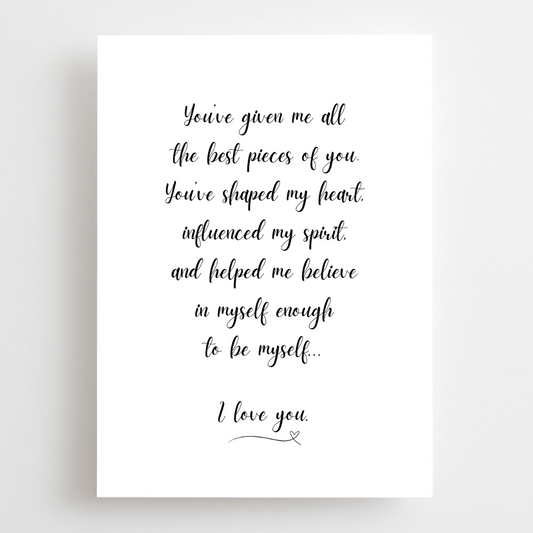 You've given me all
the best pieces of you.
You've shaped my heart,
influenced my spirit,
and helped me believe
in myself enough
to be myself...
I love you.